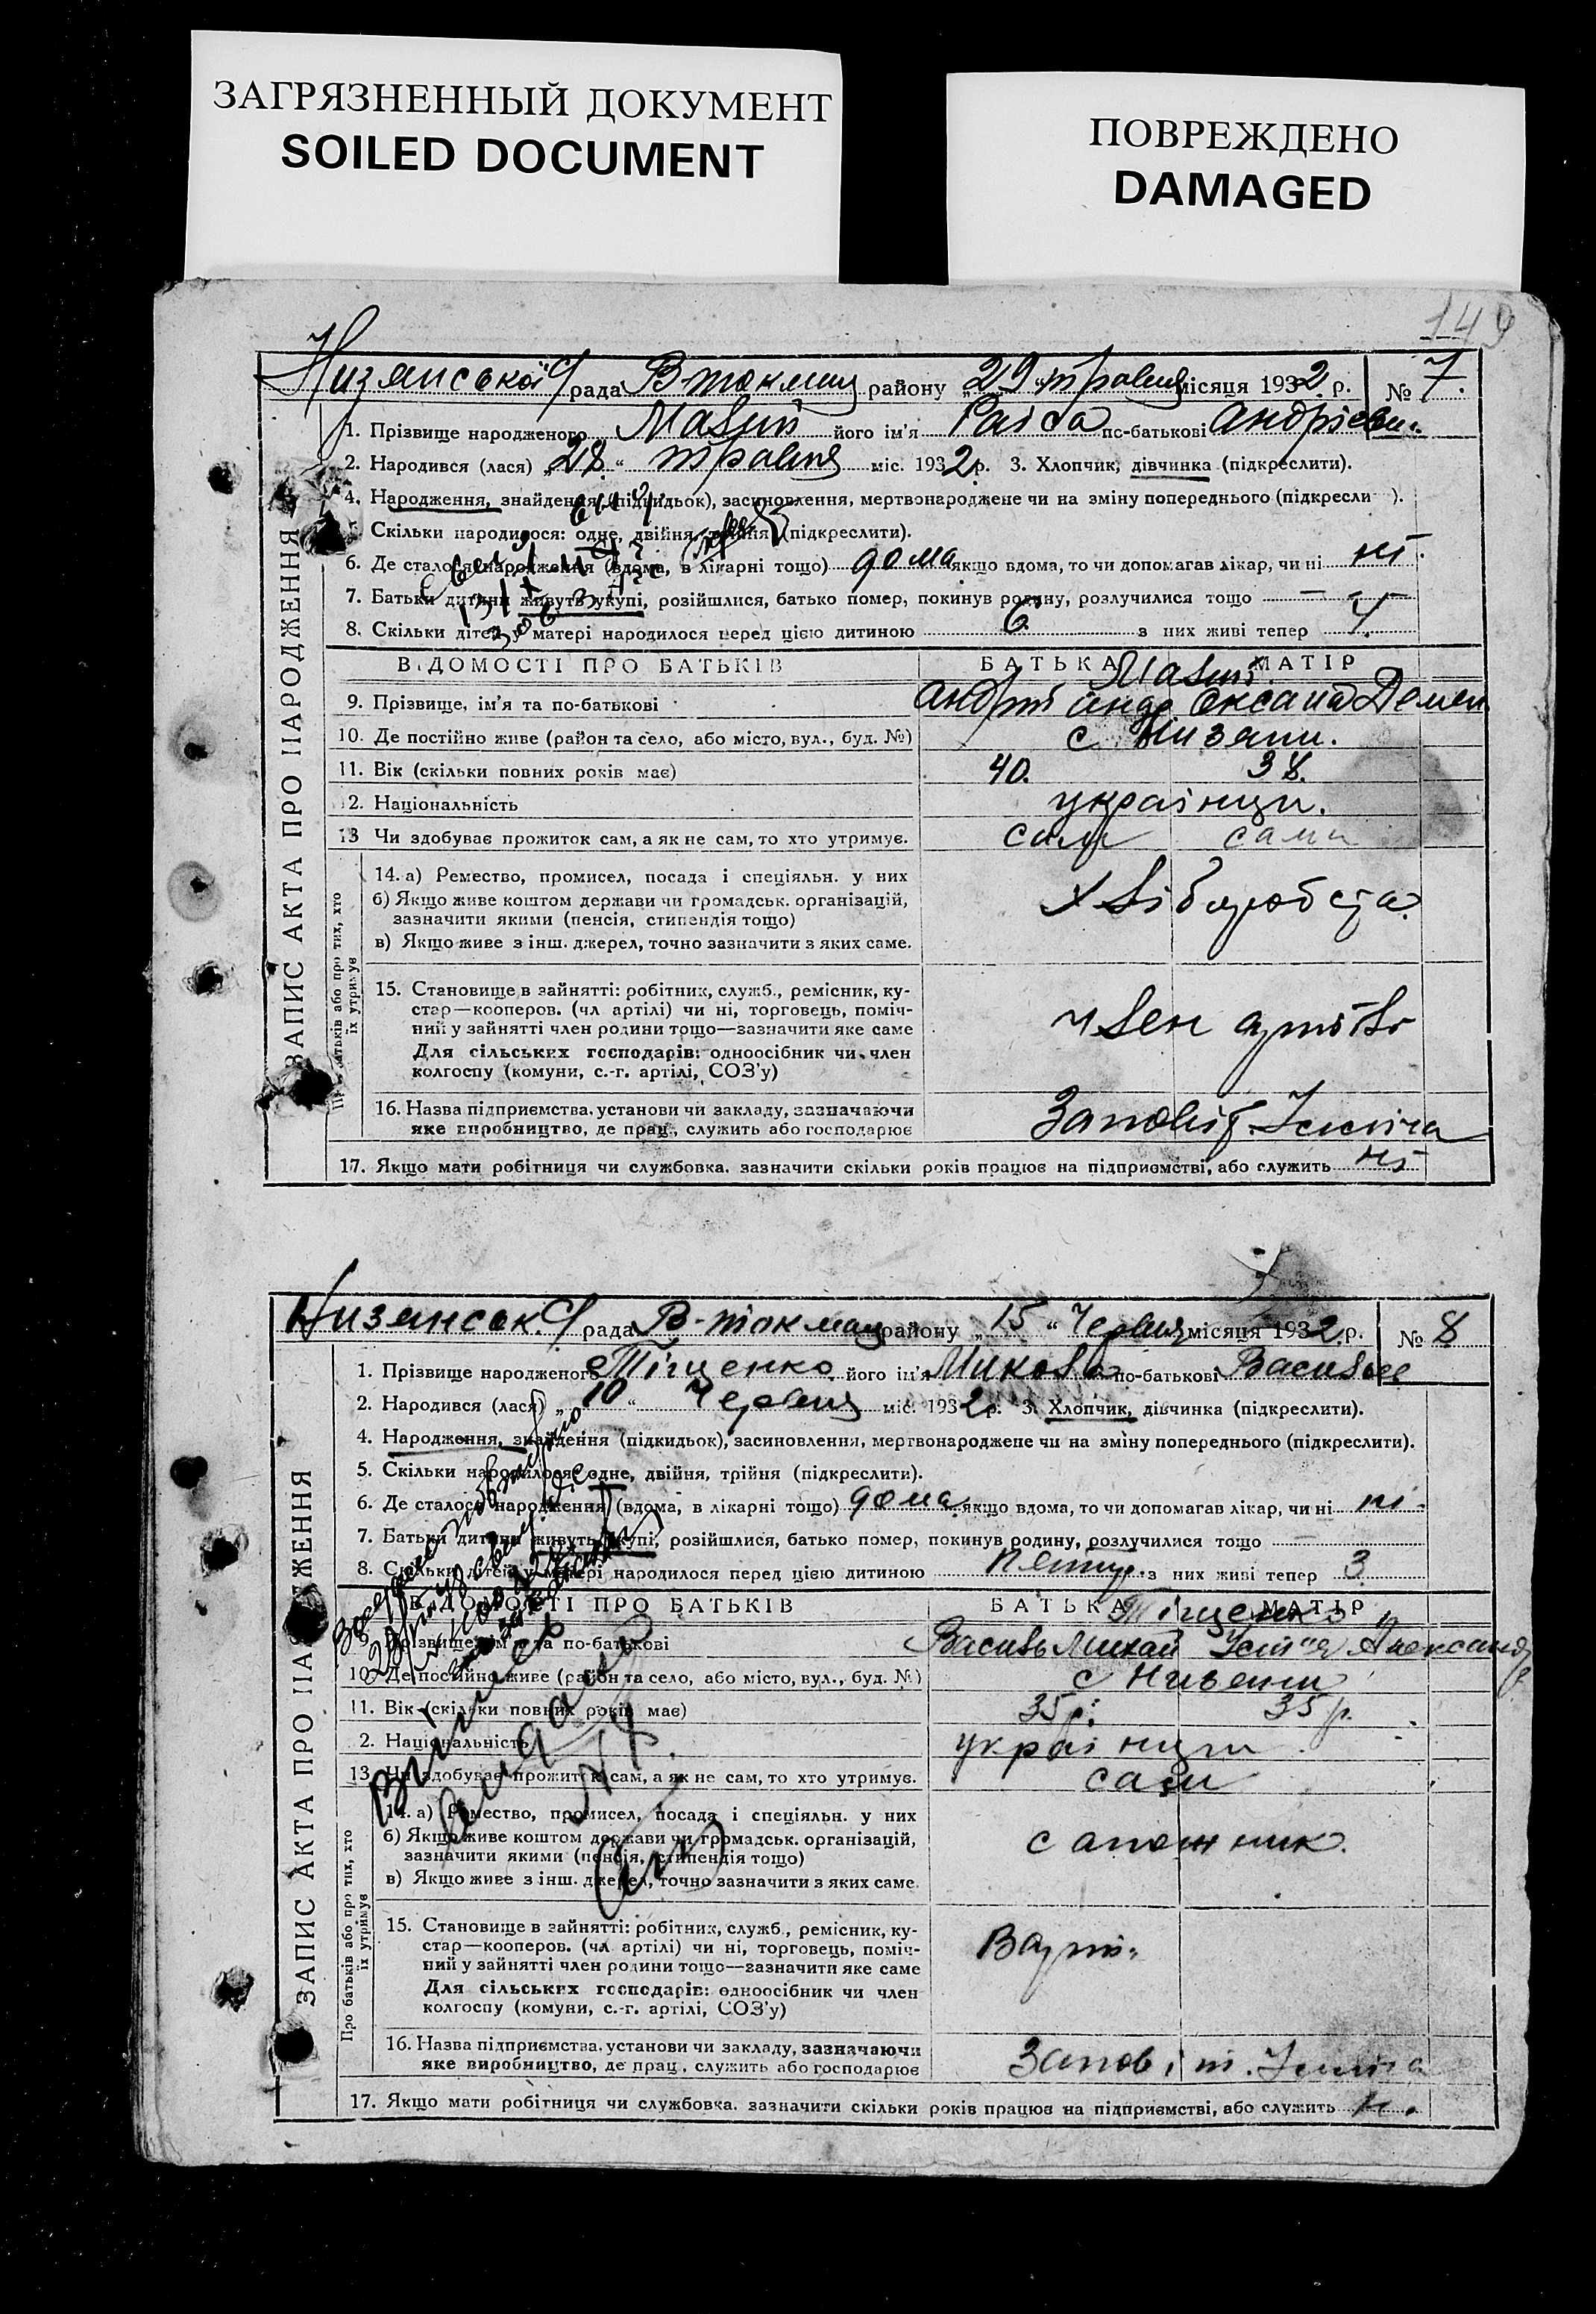 ЗАГРЯЗНЕННЫЙ ДОКУМЕНТ
SOILED DOCUMENT
ПОВРЕЖДЕНО
DAMAGED
149
Низянської с/рада В-токмац району „29" травня місяця 1932 р. № 7.
ЗАПИС АКТА ПРО НАРОДЖЕННЯ
1. Прізвище народженого Малий його ім'я Раіса по-батькові Андріевн.
2. Народився (лася) „28" травня міс. 1932 р. 3. Хлопчик, дівчинка (підкреслити).
4. Народження, знайдення (підкидьок), засиновлення, мертвонароджене чи на зміну попереднього (підкресли ).
5. Скільки народилося: одне, двійня, трійня (підкреслити).
6. Де сталося народження (вдома, в лікарні тощо) дома якщо вдома, то чи допомагав лікар, чи ні ні.
7. Батьки дитини живуть укупі, розійшлися, батько помер, покинув родину, розлучилися тощо —
8. Скільки дітей у матері народилося перед цією дитиною 6 з них живі тепер 4.
ВІДОМОСТІ ПРО БАТЬКІВ БАТЬКА МАТІР
Малий
9. Прізвище, ім'я та по-батькові Андрій Андр Оксана Демен
10. Де постійно живе (район та село, або місто, вул., буд. №) с Низяни.
11. Вік (скільки повних років має) 40. 38.
12. Національність українци.
13 Чи здобуває прожиток сам, а як не сам, то хто утримує. сам сама
Про батьків або про тих, хто їх утримує
14. а) Ремество, промисел, посада і спеціяльн. у них
б) Якщо живе коштом держави чи громадськ. організацій,
зазначити якими (пенсія, стипендія тощо)
в) Якщо живе з інш. джерел, точно зазначити з яких саме.
хліборобства
15. Становище в зайнятті: робітник, служб., ремісник, ку-
стар—кооперов. (чл артілі) чи ні, торговець, поміч-
ний у зайнятті член родини тощо—зазначити яке саме
Для сільських господарів: одноосібник чи член
колгоспу (комуни, с.-г. артілі, СОЗ'у)
член артілі
16. Назва підприємства, установи чи закладу, зазначаючи
яке виробництво, де прац., служить або господарює
Заповіт. Ілліча
17. Якщо мати робітниця чи службовка, зазначити скільки років працює на підприємстві, або служить ні
Низянськ. с/рада В-токмац району „15" Червня місяця 1932 р. № 8
ЗАПИС АКТА ПРО НАРОДЖЕННЯ
1. Прізвище народженого Тіщенко його ім'я Микола по-батькові Васильев
2. Народився (лася) „10" Червня міс. 1932 р. 3. Хлопчик, дівчинка (підкреслити).
4. Народження, знайдення (підкидьок), засиновлення, мертвонароджене чи на зміну попереднього (підкреслити).
5. Скільки народилося: одне, двійня, трійня (підкреслити).
6. Де сталося народження (вдома, в лікарні тощо) дома якщо вдома, то чи допомагав лікар, чи ні ні.
7. Батьки дитини живуть укупі, розійшлися, батько помер, покинув родину, розлучилися тощо —
8. Скільки дітей у матері народилося перед цією дитиною з них живі тепер 3
ВІДОМОСТІ ПРО БАТЬКІВ БАТЬКА МАТІР
Тіщенко
9. Прізвище, ім'я та по-батькові Василь Михай Устья Александр
10. Де постійно живе (район та село, або місто, вул., буд. №) с Низени
11. Вік (скільки повних років має) 35 р. 35 р.
2. Національність українци
13. Чи здобуває прожиток сам, а як не сам, то хто утримує. сам
Про батьків або про тих, хто їх утримує
14. а) Ремество, промисел, посада і спеціяльн. у них
б) Якщо живе коштом держави чи громадськ. організацій,
зазначити якими (пенсія, стипендія тощо)
в) Якщо живе з інш. джерел, точно зазначити з яких саме.
сапожник.
15. Становище в зайнятті: робітник, служб., ремісник, ку-
стар—кооперов. (чл артілі) чи ні, торговець, поміч-
ний у зайнятті член родини тощо—зазначити яке саме
Для сільських господарів: одноосібник чи член
колгоспу (комуни, с.-г. артілі, СОЗ'у)
В арті.
16. Назва підприємства, установи чи закладу, зазначаючи
яке виробництво, де прац., служить або господарює
Заповіт. Ілліча
17. Якщо мати робітниця чи службовка, зазначити скільки років працює на підприємстві, або служить н.